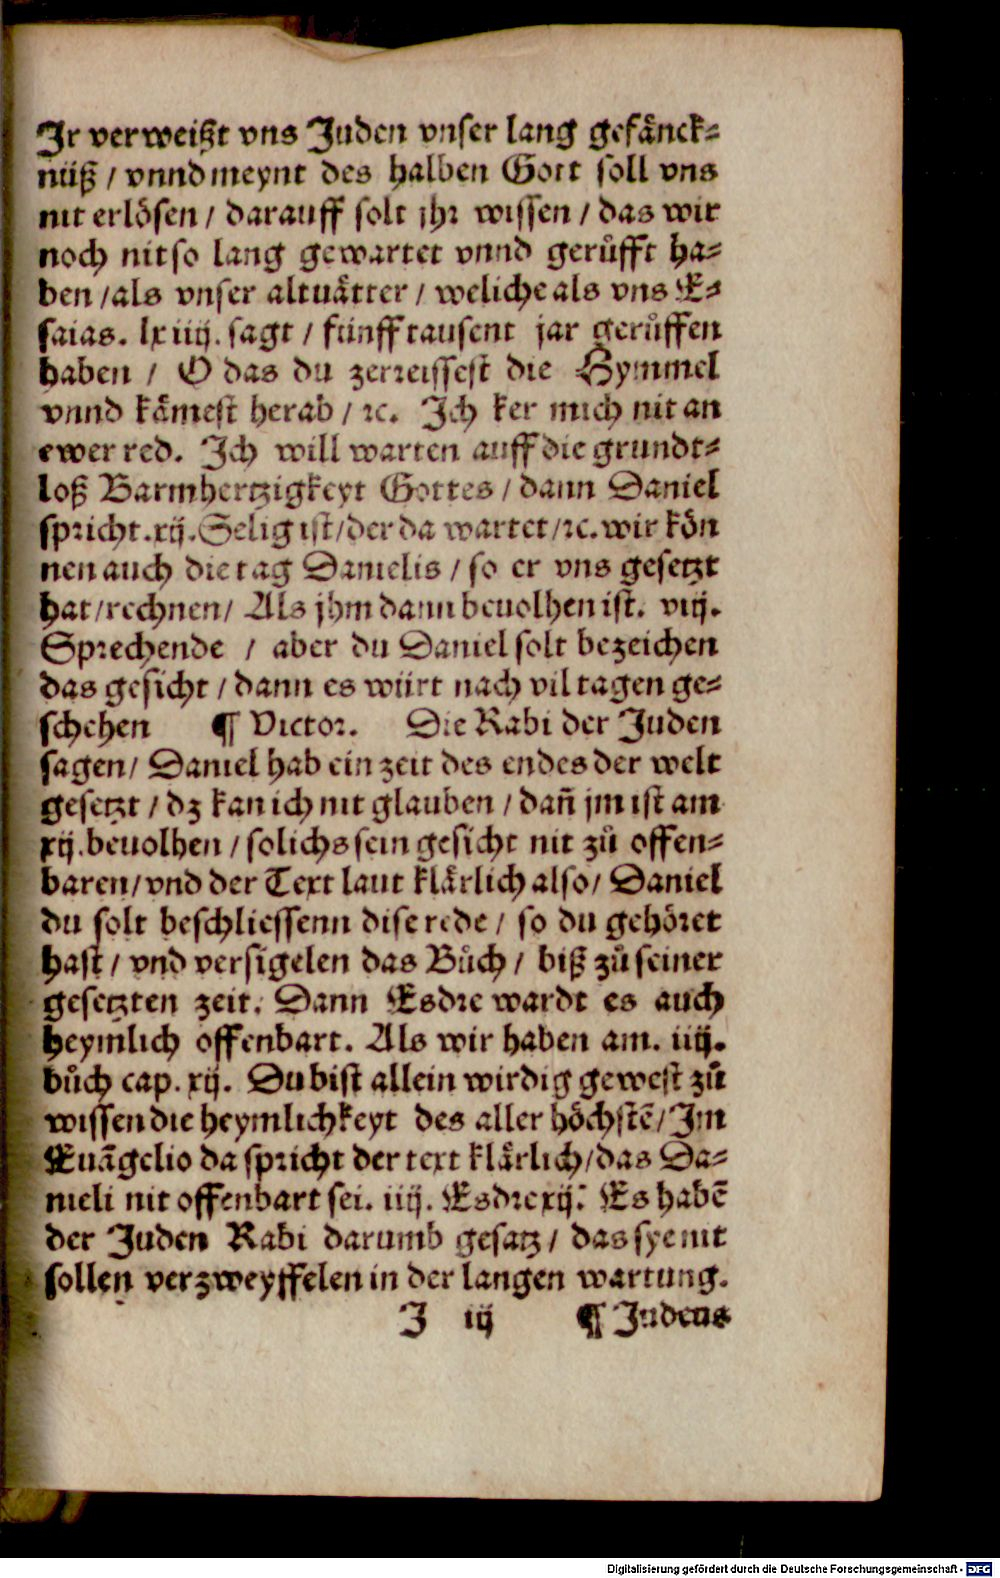 Jr verweißt vns Juden vnser lang gefänck⸗
nüß / vnnd meynt des halben Gott soll vns
nit erlösen / darauff solt jhr wissen / das wir
noch nit so lang gewartet vnnd gerůfft ha⸗
ben / als vnser altuätter / weliche als vns E⸗
saias. lxiiij. sagt / fünff tausent jar gerůffen
haben / O das du zerreissest die Hymmel
vnnd kämest herab / ꝛc. Ich ker mich nit an
ewer red. Ich will warten auff die grundt⸗
loß Barmhertzigkeyt Gottes / dann Daniel
spricht. xij. Selig ist / der da wartet / ꝛc. wir kön
nen auch die tag Danielis / so er vns gesetzt
hat / rechnen / Als jhm dann beuolhen ist. viij.
Sprechende / aber du Daniel solt bezeichen
das gesicht / dann es würt nach vil tagen ge⸗
schehen ¶ Victor. Die Rabi der Juden
sagen / Daniel hab ein zeit des endes der welt
gesetzt / dz kan ich nit glauben / dañ jm ist am
xij. beuolhen / solichs sein gesicht nit zů offen⸗
baren / vnd der Text laut klärlich also / Daniel
du solt beschliessenn dise rede / so du gehöret
hast / vnd versigelen das Bůch / biß zů seiner
gesetzten zeit. Dann Esdre wardt es auch
heymlich offenbart. Als wir haben am. iiij.
bůch cap. xij. Du bist allein wirdig gewest zů
wissen die heymlichkeyt des aller höchstē / Im
Euāgelio da spricht der text klärlich / das Da⸗
nieli nit offenbart sei. iiij. Esdre xij. Es habē
der Juden Rabi darumb gesatz / das sye nit
sollen verzweyffelen in der langen wartung.
J iij ¶ Judeus
Digitalisierung gefördert durch die Deutsche Forschungsgemeinschaft - DFG